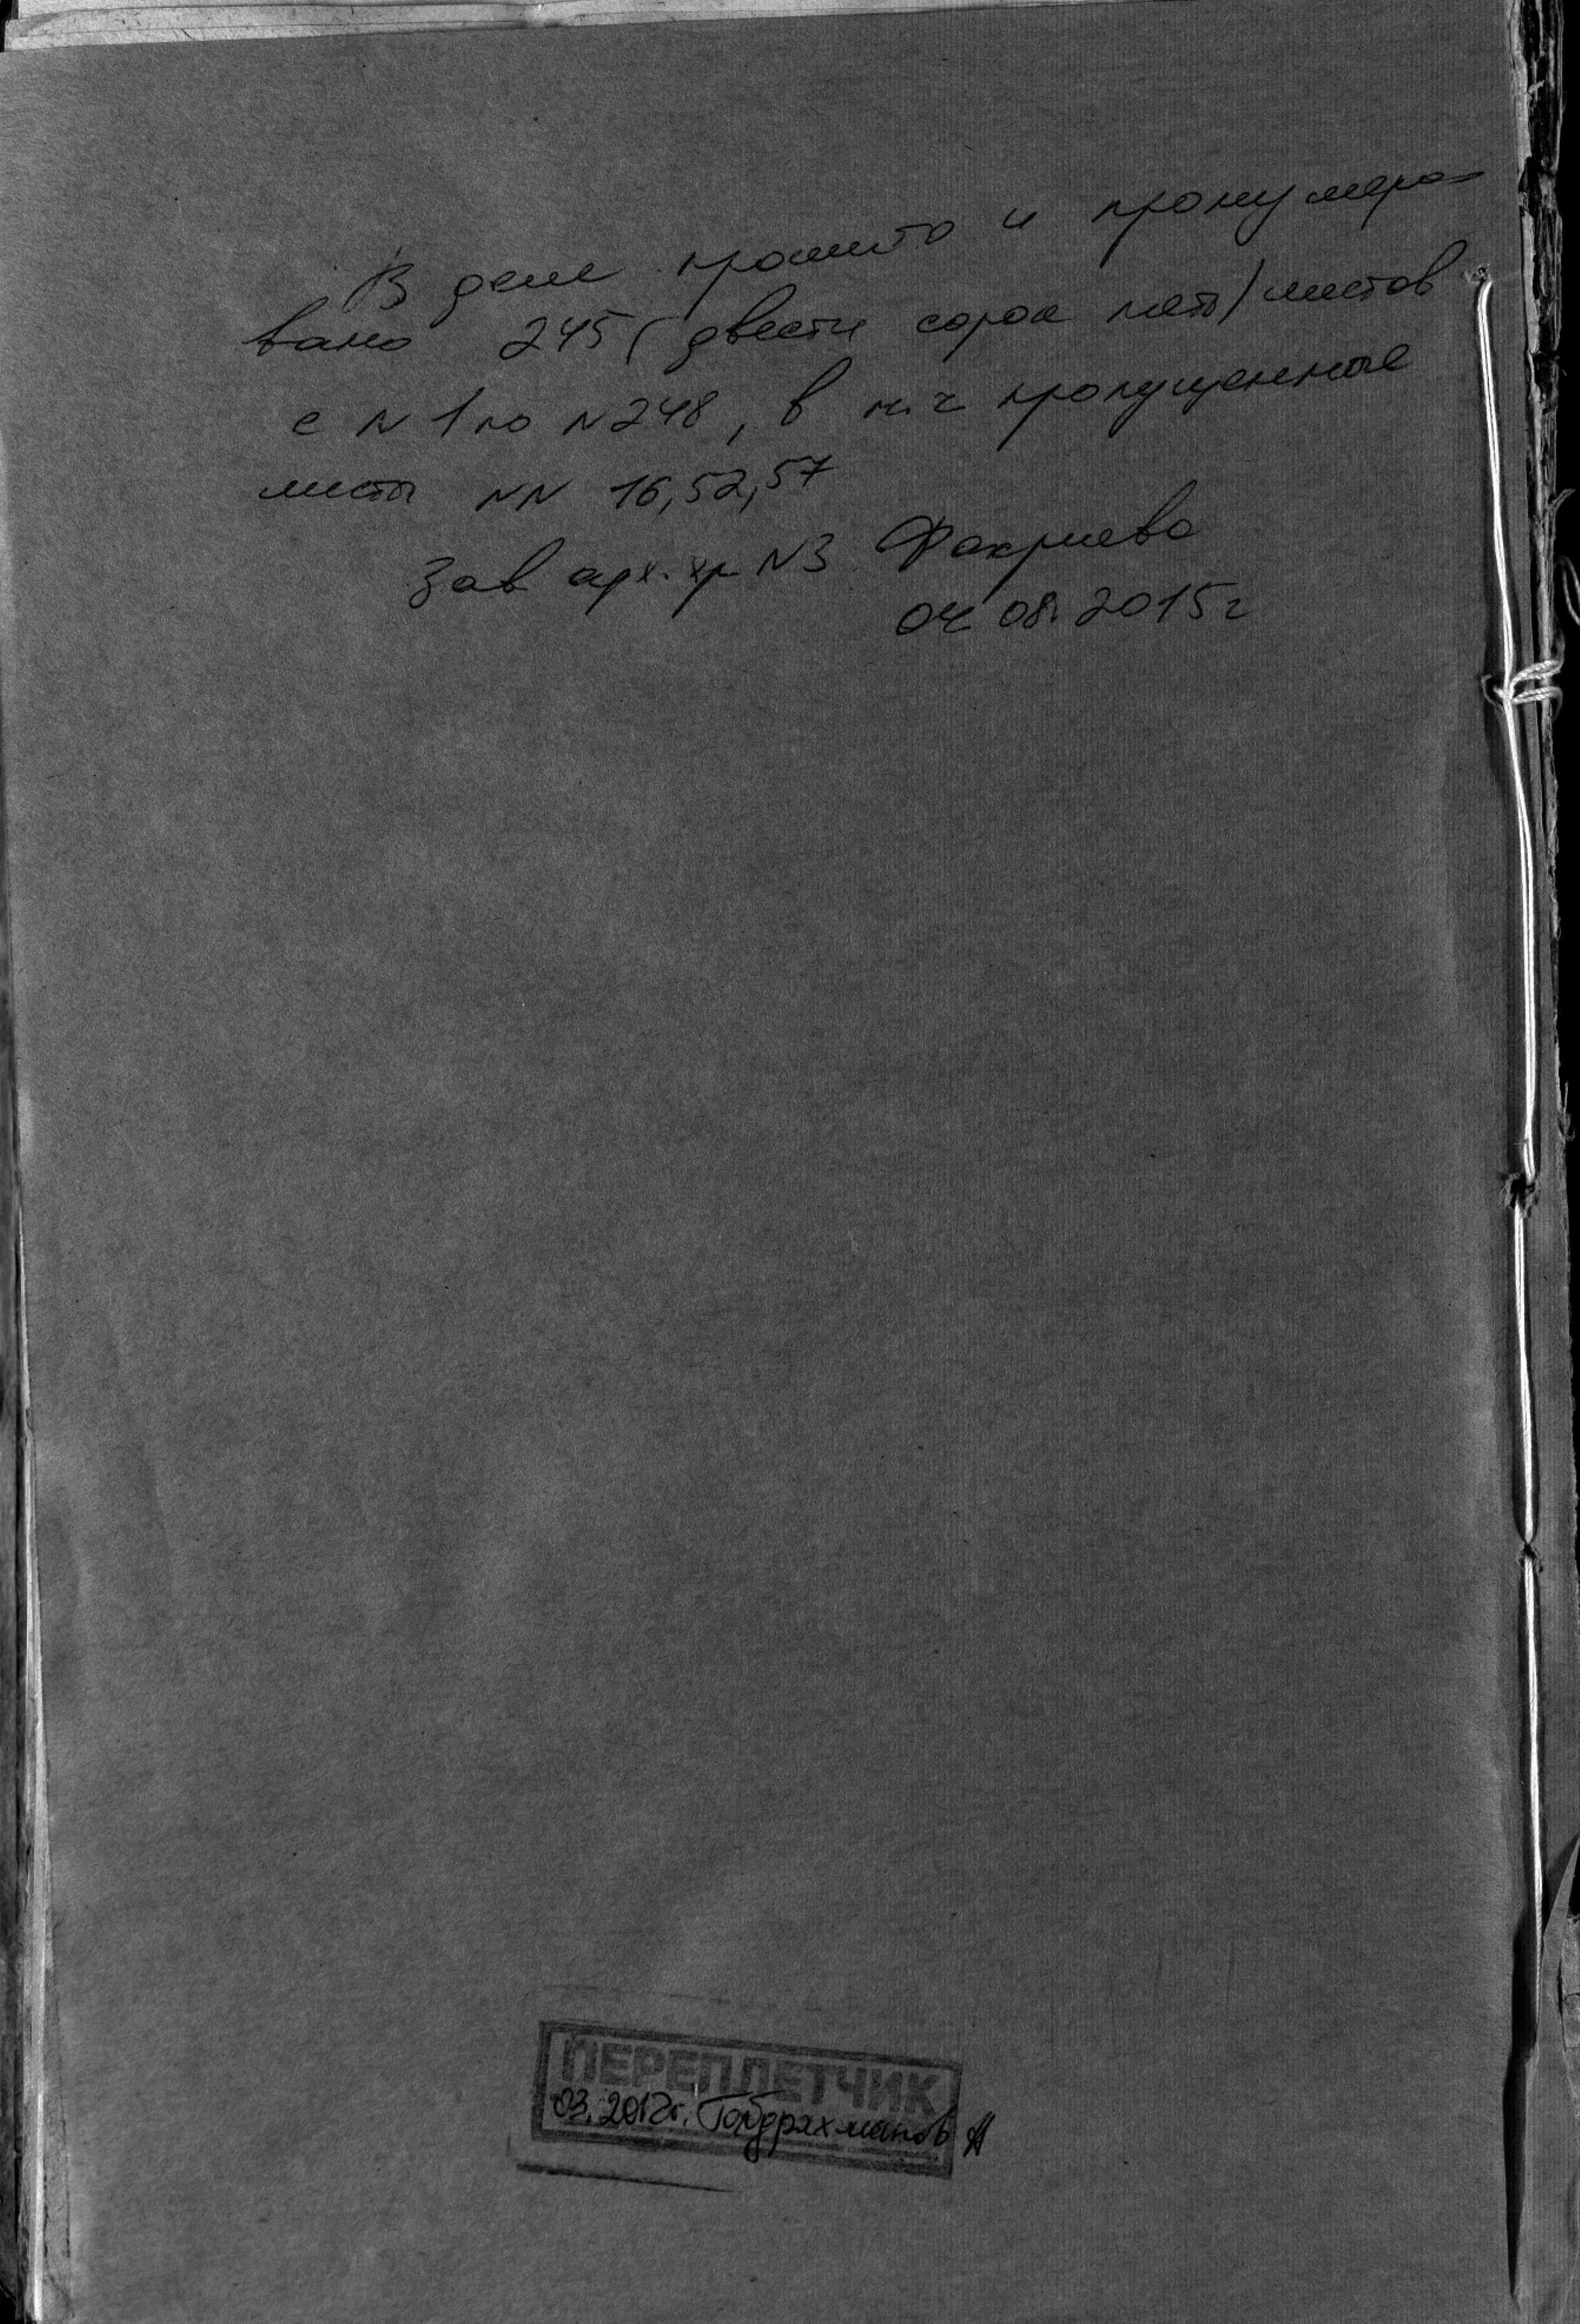 В деле прошито и пронумеро-
вано 245 (двести сорок пять) листов
с N 1 по N 248, в т.ч пропущенные
листы NN 16,52,57
Зав арх. хр N3 Факриева
04 08. 2015 г
ПЕРЕПЛЕТЧИК
03. 2012г. Габдрахманов А